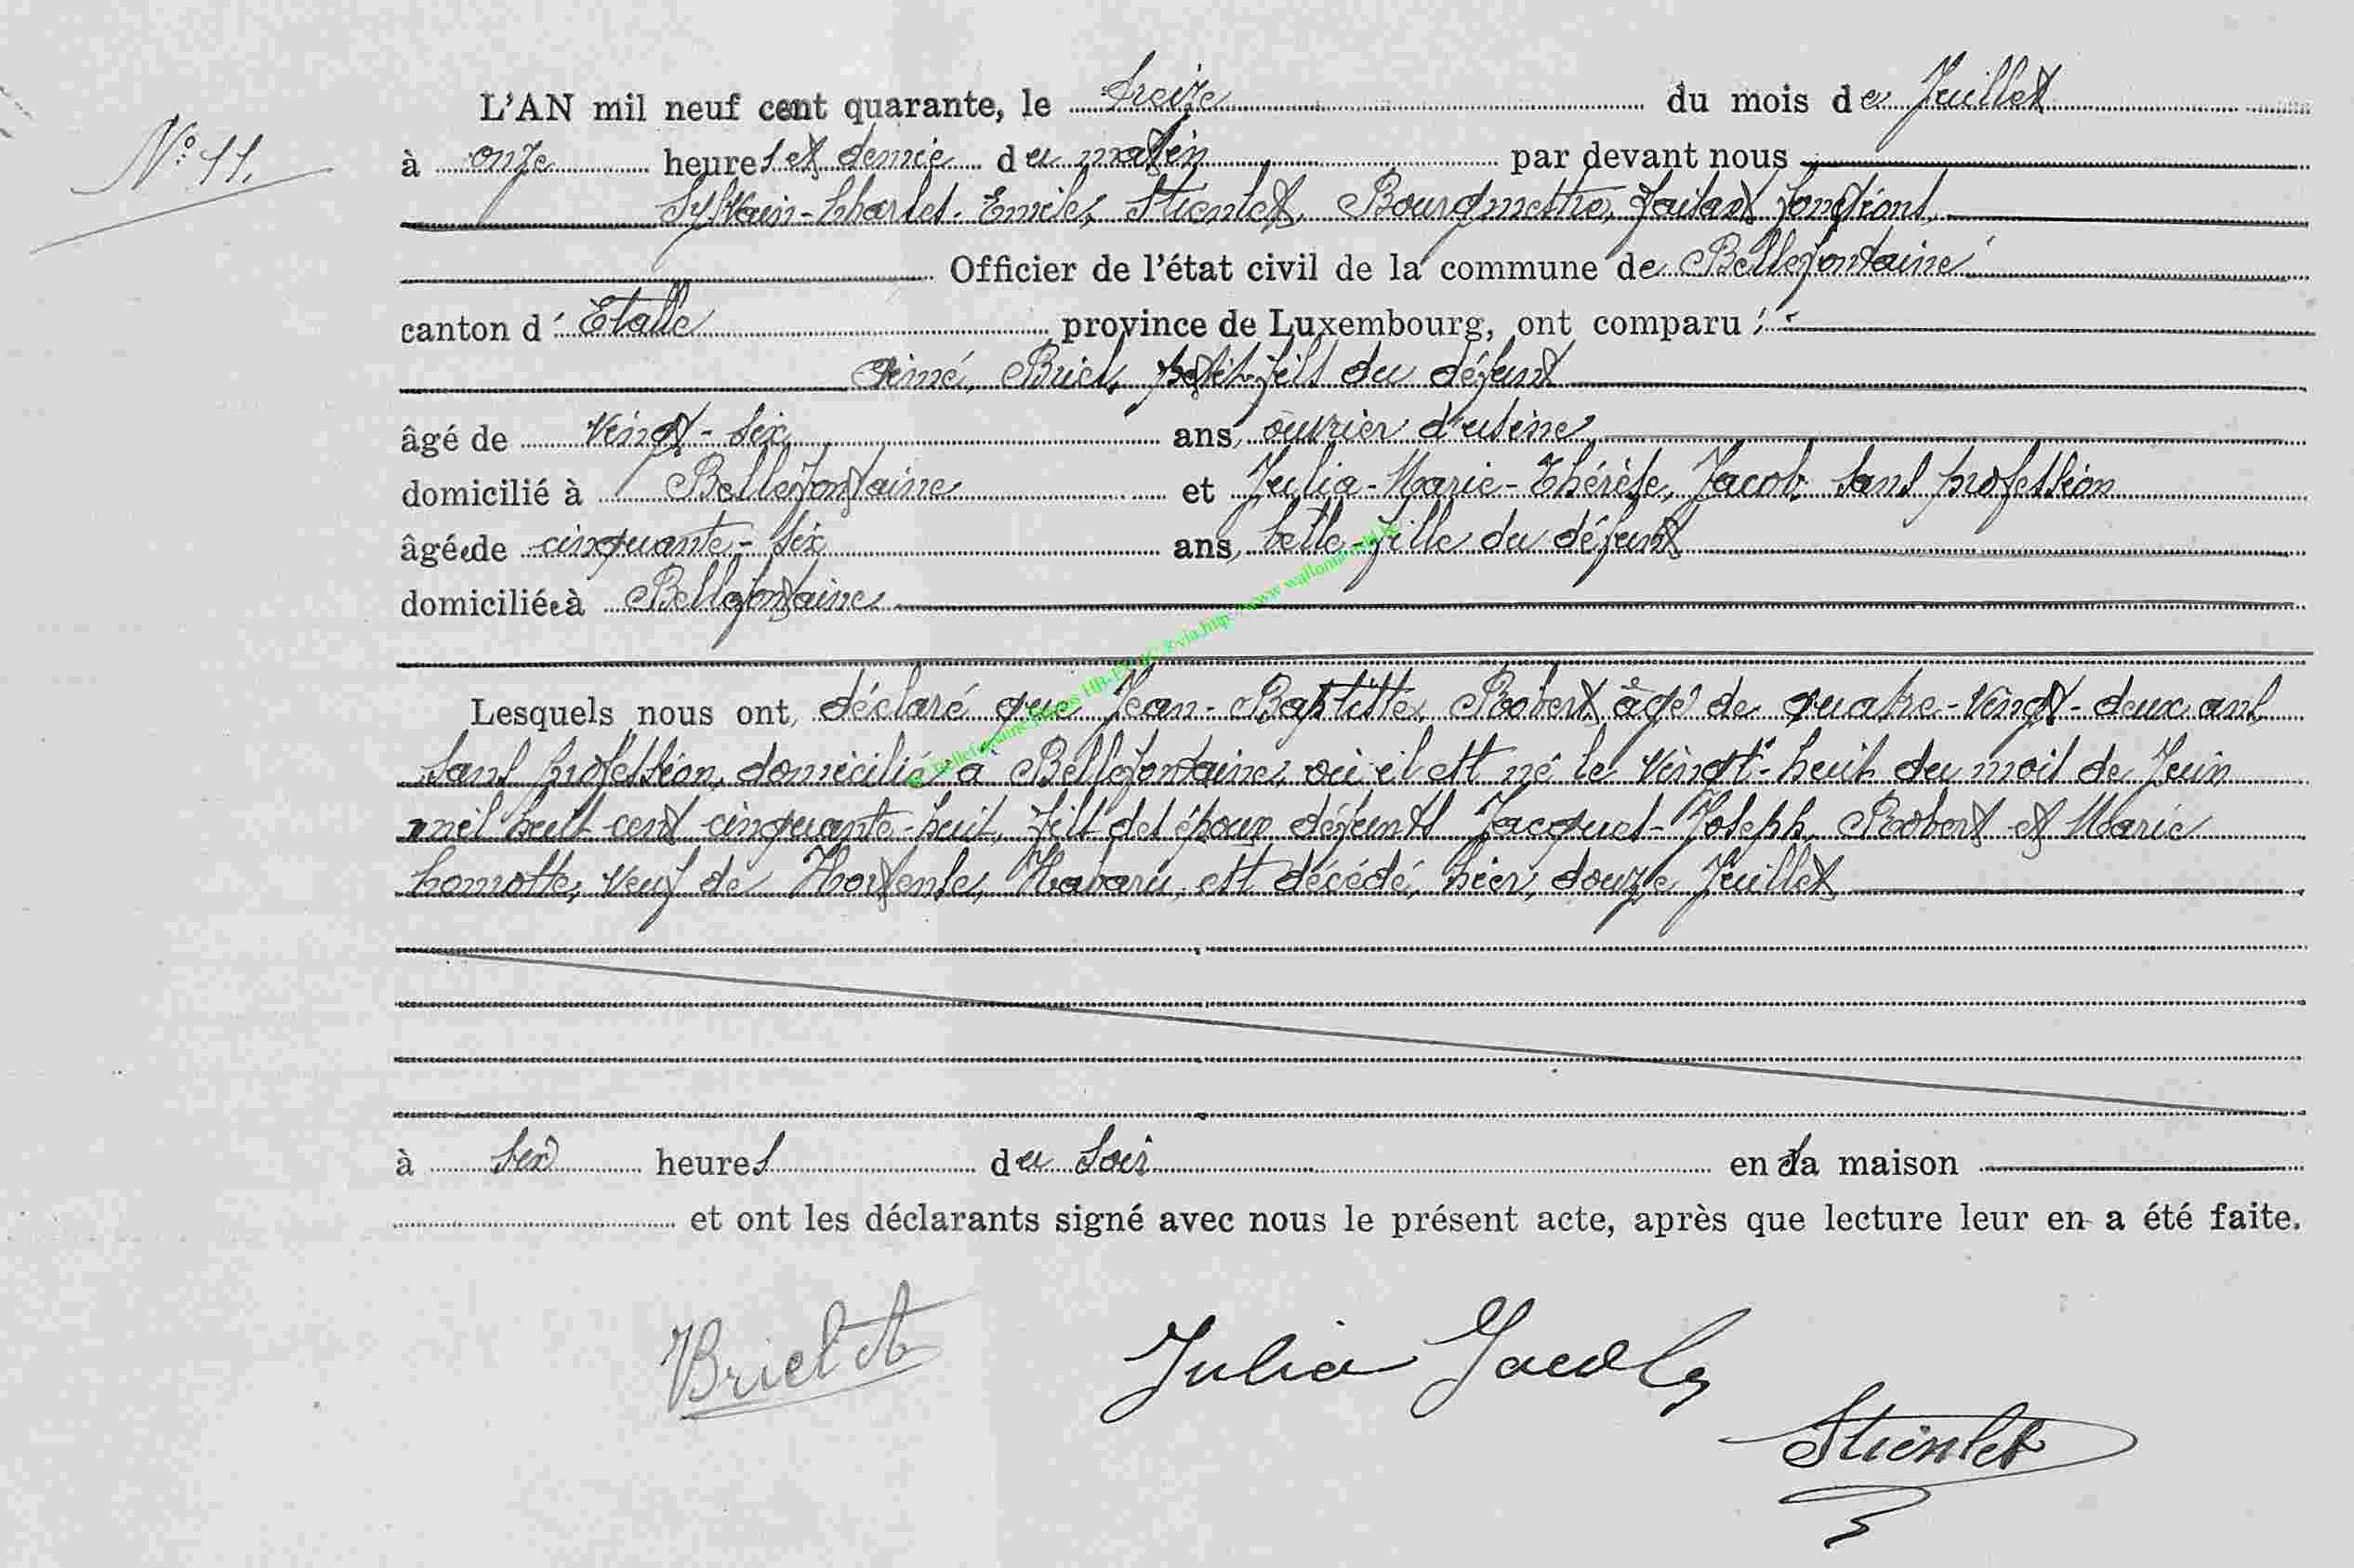 L'AN mil neuf cent quarante, le treize du mois de Juillet
N° 11.
à onze heures et demie du matin par devant nous
Sylvain-Charles-Emile, Stienlet, Bourgmestre, faisant fonctions,
Officier de l'état civil de la commune de Bellefontaine
canton d'Etalle province de Luxembourg, ont comparu :
Aimé, Briel, petit-fils du défunt
âgé de vingt-six ans, ouvrier d'usine
domicilié à Bellefontaine et Julia-Marie-Thérèse, Jacob, sans profession
âgée de cinquante-six ans, belle-fille du défunt
domiciliée à Bellefontaine
Lesquels nous ont, déclaré que Jean-Baptiste, Robert, âgé de quatre-vingt-deux ans,
sans profession, domicilié à Bellefontaine, où il est né le vingt-huit du mois de Juin
mil huit cent cinquante-huit, fils des époux défunts Jacques-Joseph, Robert et Marie
veuf de Hortense, Habaru, est décédé, hier, douze Juillet
à six heures du soir en sa maison
et ont les déclarants signé avec nous le présent acte, après que lecture leur en a été faite.
Briel A
Julia Jacob
Stienlet